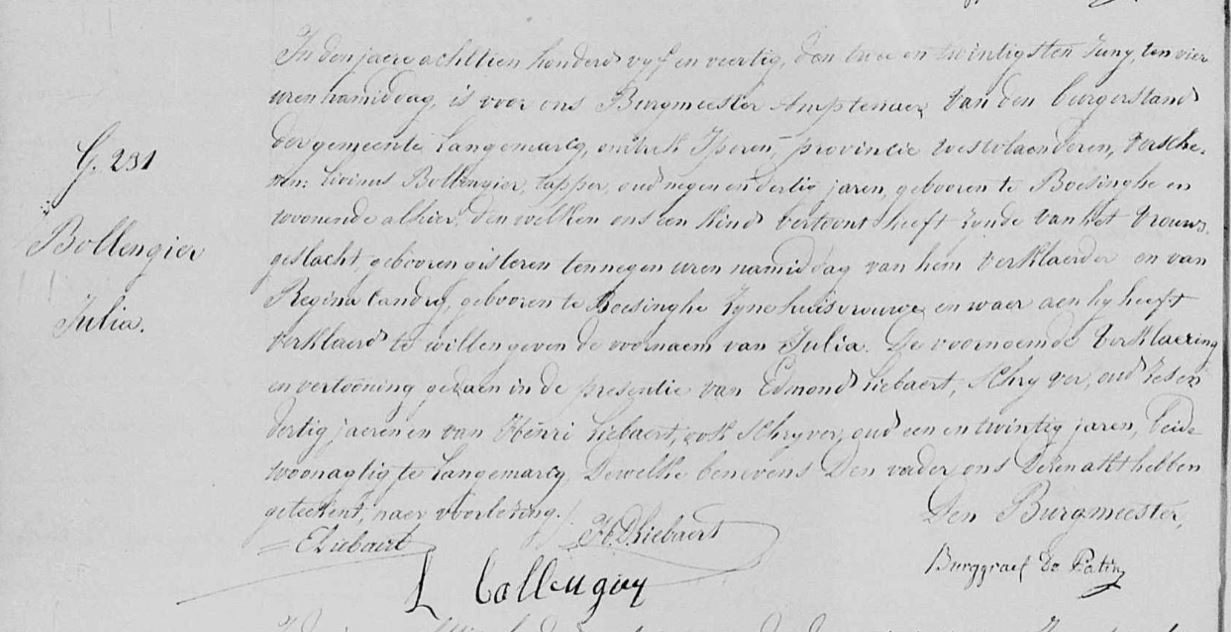 G. 231
Bollengier
Julia.
In den jaere achttien honderd vyf en veertig, den twee en twintigsten Juny, ten vier
uren namiddag, is voor ons Burgmeester Amptenaer van den burgerstand
der gemeente Langemarcq, omtrek Iperen, provincie westvlaenderen, versche-
nen: Livinus Bollengier, tapper, oud negen en dertig jaren, gebooren te Boesinghe en
woonende alhier, den welken ons een kind vertoont heeft zynde van het vrouws-
geslacht, gebooren gisteren ten negen uren namiddag van hem verklaerder en van
Regina Candry, gebooren te Boesinghe zyne huisvrouwe, en waer aen hy heeft
verklaerd te willen geven de voornaem van Julia. De voornoemde verklaering
en vertooning gedaen in de presentie van Edmond Liebaert, schryver, oud zes en
dertig jaeren en van Henri Liebaert, ook schryver, oud een en twintig jaren, beide
woonagtig te Langemarcq, Dewelke benevens Den vader, ons Dezen akt hebben
geteekent, naer voorlezing.
Den Burgmeester,
E Liebaert
H. D Liebaert
Burggraef De Patin
L Bollengier